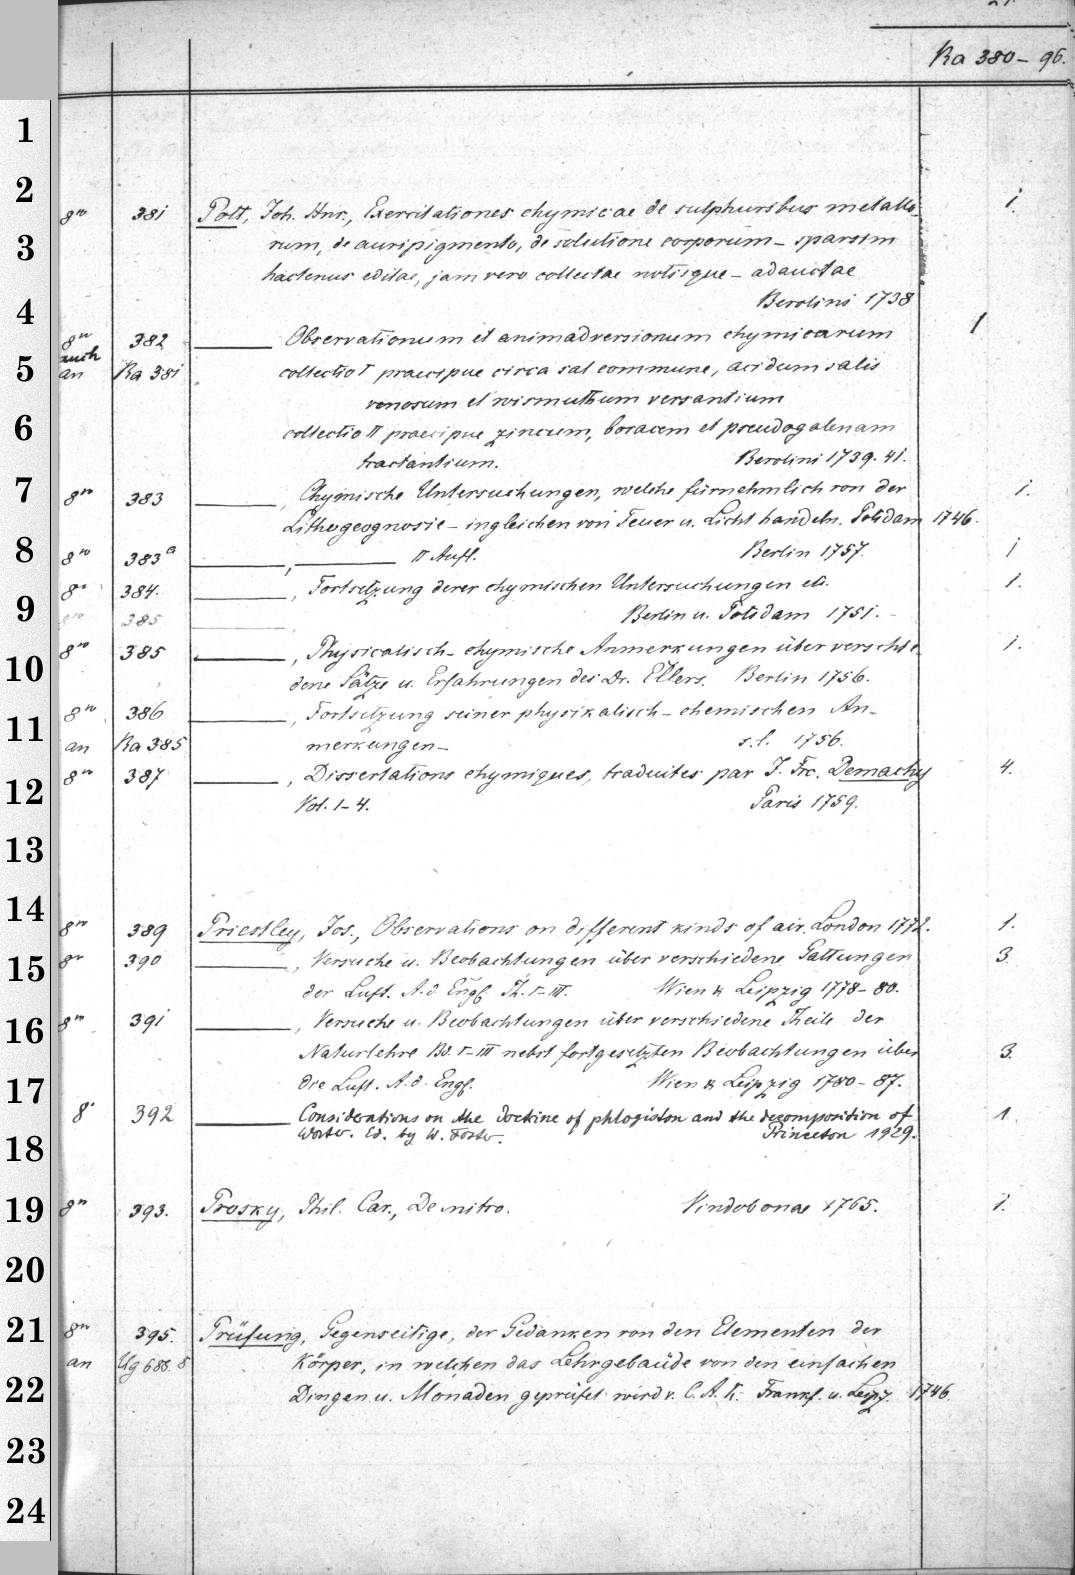 Ra 380-96.
1
2
8vo 381 Pott, Joh. Hnr., Exercitationes chymicae de sulphuribus metallo- 1.
3
rum, de auripigmento, de solutione corporum - sparsim
hactenus editae, jam vero collectae notisque - adauctae
4
Berolini 1738
8vo 382 Observationum et animadversionum chymicarum 1
auch
5
an Ra 381 collectio I praecipue circa sal commune, acidum salis
vinosum et wismuthum versantium
6
collectio II praecipue zincum, boracem et pseudogalenam
tractantium. Berolini 1739. 41.
7
8vo 383 , Chymische Untersuchungen, welche fürnehmlich von der 1.
Lithogeognosie - ingleichen von Feuer u. Licht handeln. Potsdam 1746.
8
8vo 383a , II Aufl. Berlin 1757. 1
8o 384. , Fortsetzung derer chymischen Untersuchungen etc. 1.
9
8vo 385 Berlin u. Potsdam 1751. -
10
8vo 385 , Physicalisch-chymische Anmerkungen über verschie 1.
dene Sätze u. Erfahrungen des Dr. Ellers. Berlin 1756.
11
8vo 386 , Fortsetzung seiner physikalisch-chemischen An-
an Ra 385 merkungen- s.l. 1756.
12
8vo 387 , Dissertations chymiques, traduites par J. Frc. Demachy 4.
Vol. 1-4. Paris 1759.
13
14
8vo 389 Priestley, Jos., Observations on different kinds of air. London 1772. 1.
15
8vo 390 , Versuche u. Beobachtungen über verschiedene Gattungen 3
der Luft. A. d. Engl. Th. I-III. Wien & Leipzig 1778-80.
16
8vo 391 , Versuche u. Beobachtungen über verschiedene Theile der
Naturlehre Bd. I-III nebst fortgesetzten Beobachtungen über 3.
17
die Luft. A. d. Engl. Wien & Leipzig 1780-87.
8o 392 Considerations on the doctrine of phlogiston and the decomposition of 1
18
water. Ed. by W. Foster. Princeton 1929.
19
8vo 393. Prosky, Phil. Car., De nitro. Vindobonae 1765. 1.
20
21
8vo 395. Prüfung, Gegenseitige, der Gedanken von den Elementen der
an Ug 686.8 Körper, in welchen das Lehrgebäude von den einfachen
22
Dingen u. Monaden geprüfet wird v. C. A. K. Frankf. u. Leipz. 1746
23
24